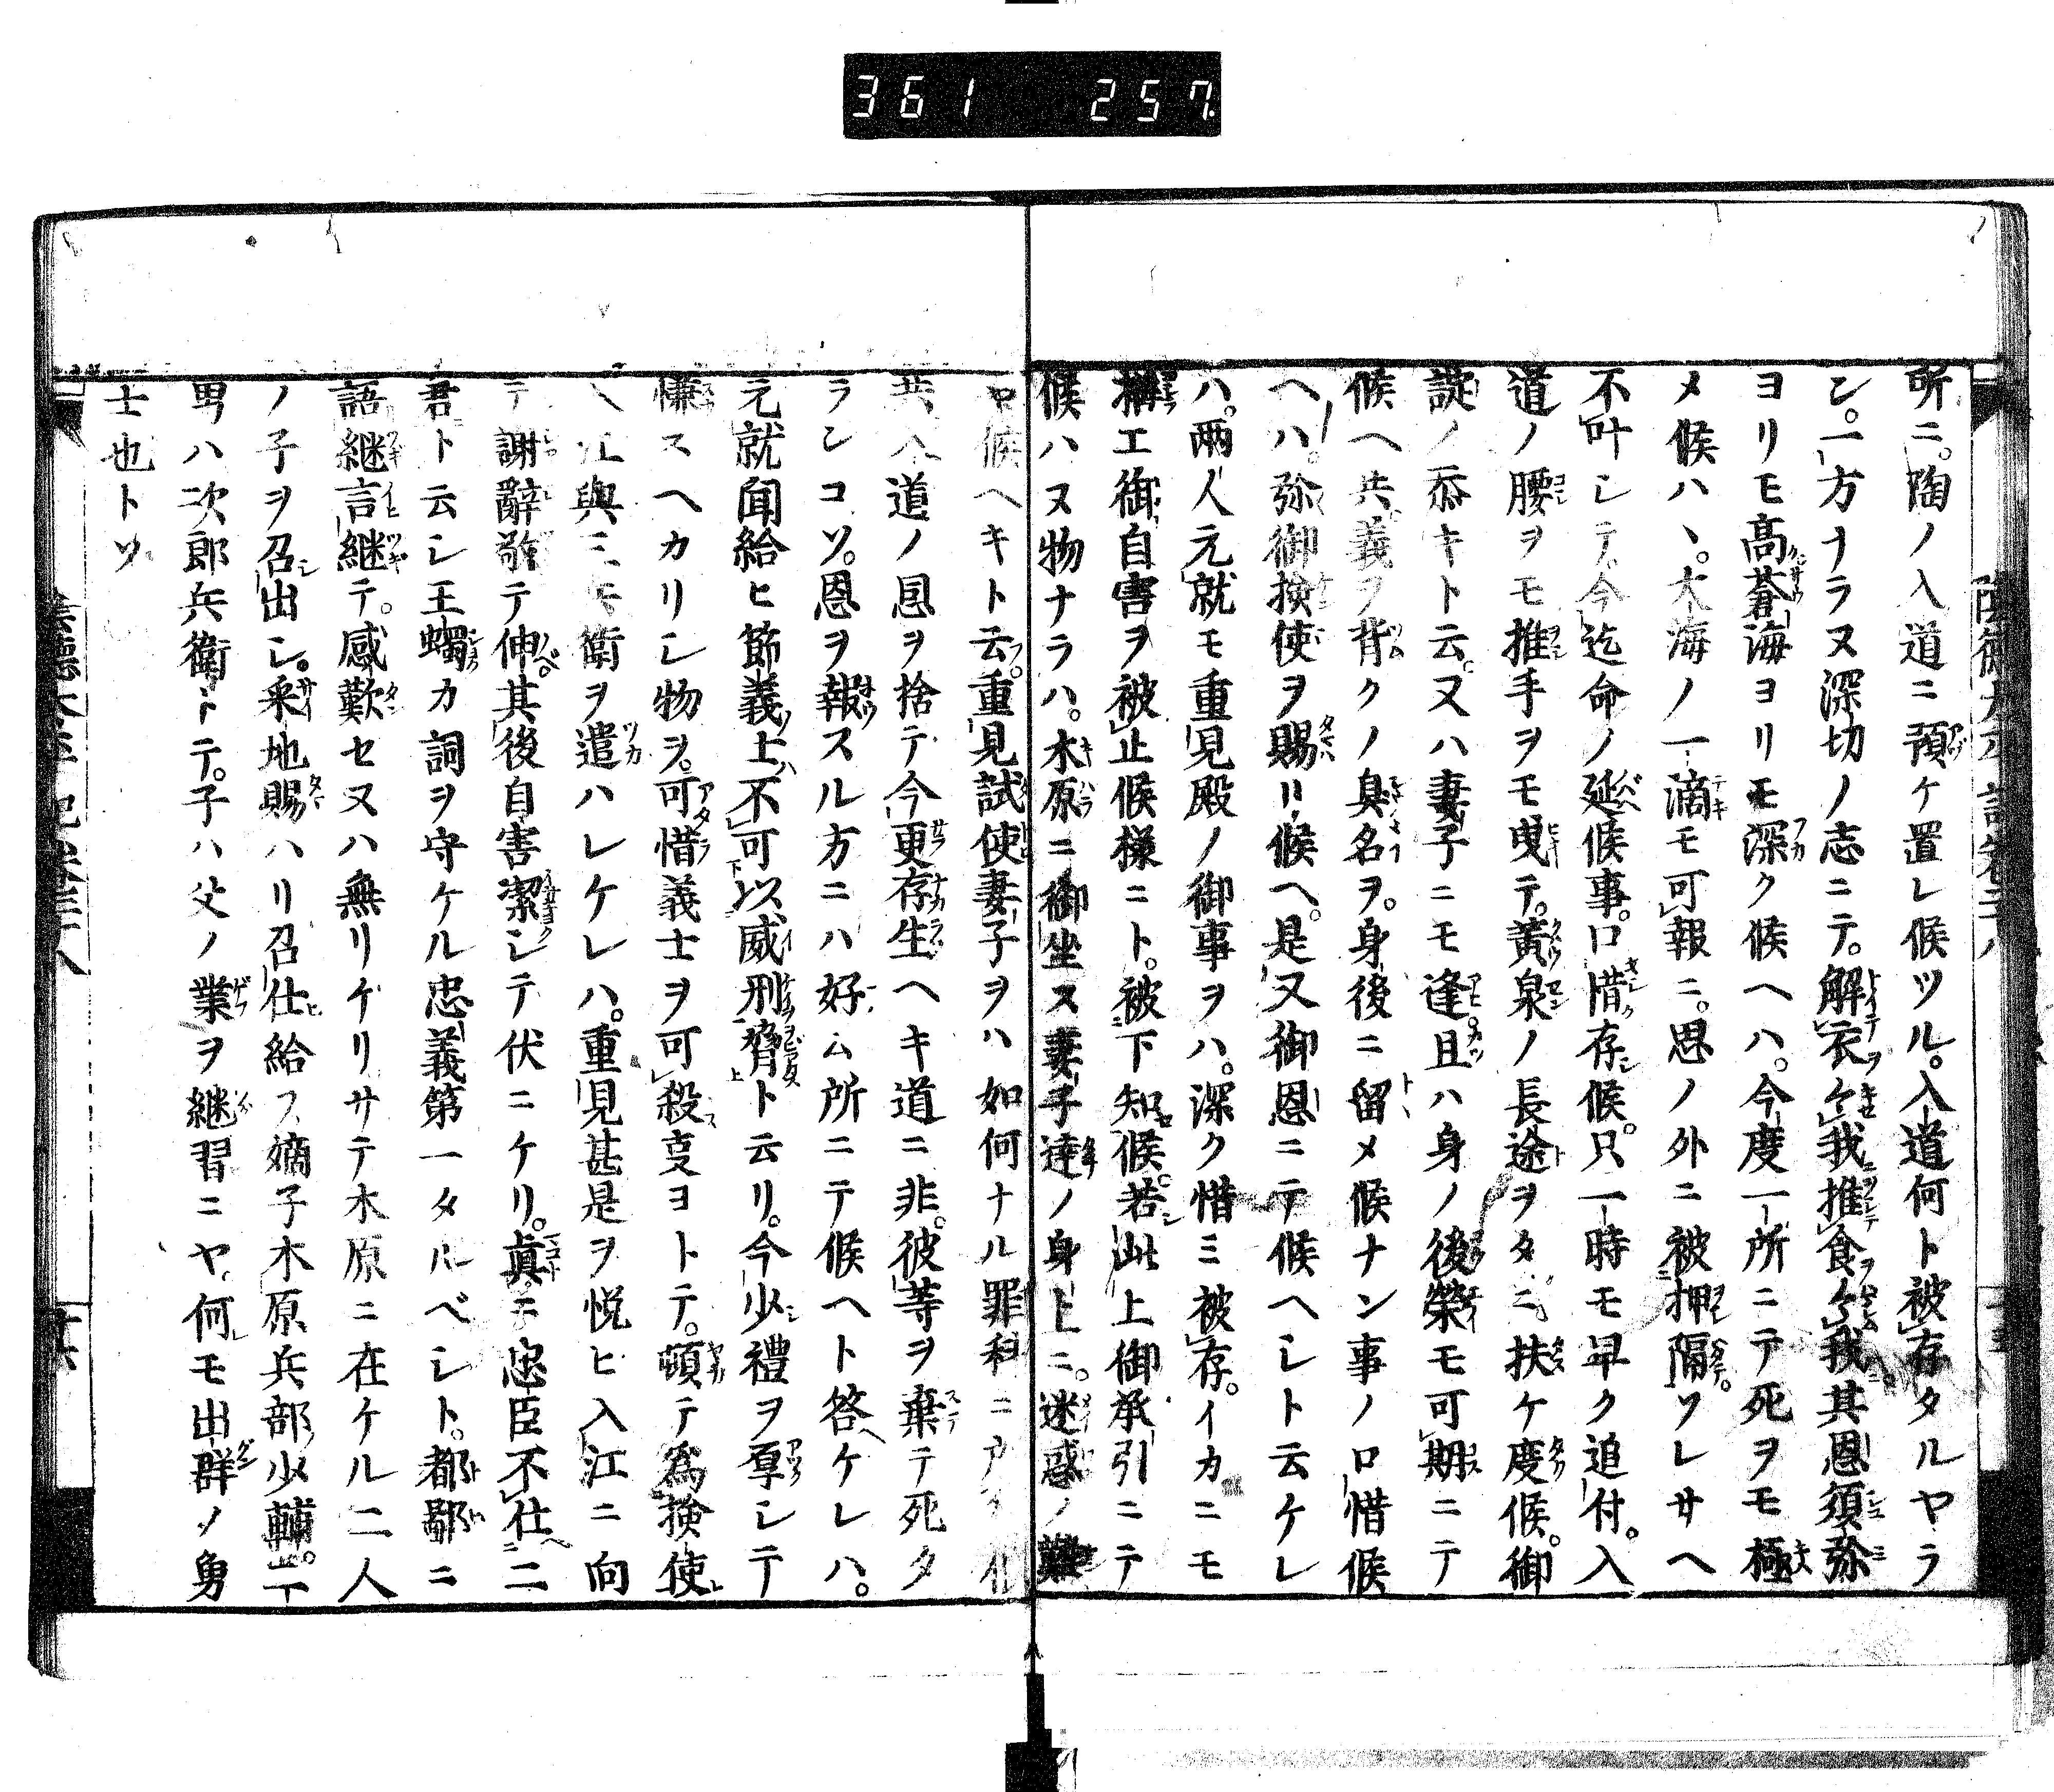 361 257
所ニ。陶ノ入道ニ預ケ置レ候ツル。入道何ト被存タルヤラ
ン。一方ナラヌ深切ノ志ニテ。解衣ケ我推食ケ我其恩須弥
ヨリモ高蒼海ヨリモ深ク候ヘハ。今度一所ニテ死ヲモ極
メ候ハヽ。大海ノ一滴モ可報ニ。思ノ外ニ被押隔ソレサヘ
不叶シテ。今迄命ノ延候事。口惜存候。只一時モ早ク追付。入
道ノ腰ヲモ推手ヲモ曳テ。黄泉ノ長途ヲタニ扶ケ度候。御
諚ノ忝キト云。又ハ妻子ニモ逢。且ハ身ノ後榮モ可期ニテ
候ヘ共。義ヲ背クノ臭名ヲ。身後ニ留メ候ナン事ノ口惜候
ヘハ。弥御検使ヲ賜リ候ヘ。是又御恩ニテ候ヘシト云ケレ
ハ。両人元就モ重見殿ノ御事ヲハ。深ク惜ミ被存。イカニモ
構エ御自害ヲ被止候様ニト。被下知候。若此上御承引ニテ
候ハヌ物ナラハ。木原ニ御坐ス妻子達ノ身上ニ。迷惑ノ難
ヤ候ヘキト云。重見試使妻子ヲハ如何ナル罪科ニ
共入道ノ恩ヲ捨テ今更存生ヘキ道ニ非。彼等ヲ棄テ死タ
ランコソ。恩ヲ報スル方ニハ好ム所ニテ候ヘト答ケレハ。
元就聞給ヒ節義上不可以威刑脅ト云リ。今少禮ヲ厚シテ
慊スヘカリシ物ヲ。可惜義士ヲ可殺叓ヨトテ。頓テ為検使
入江與三兵衛ヲ遣ハレケレハ。重見甚是ヲ悦ヒ入江ニ向
テ謝辭敬テ伸。其後自害潔シテ伏ニケリ。真ニ忠臣不仕二
君ト云シ王蠋カ詞ヲ守ケル忠義第一タルベシト。都鄙ニ
語継言継テ。感歎セヌハ無リケリサテ木原ニ在ケル二人
ノ子ヲ召出シ。采地賜ハリ召仕給フ嫡子木原兵部少輔。二
男ハ次郎兵衛トテ。子ハ父ノ業ヲ継習ニヤ。何モ出群ノ勇
士也トソ